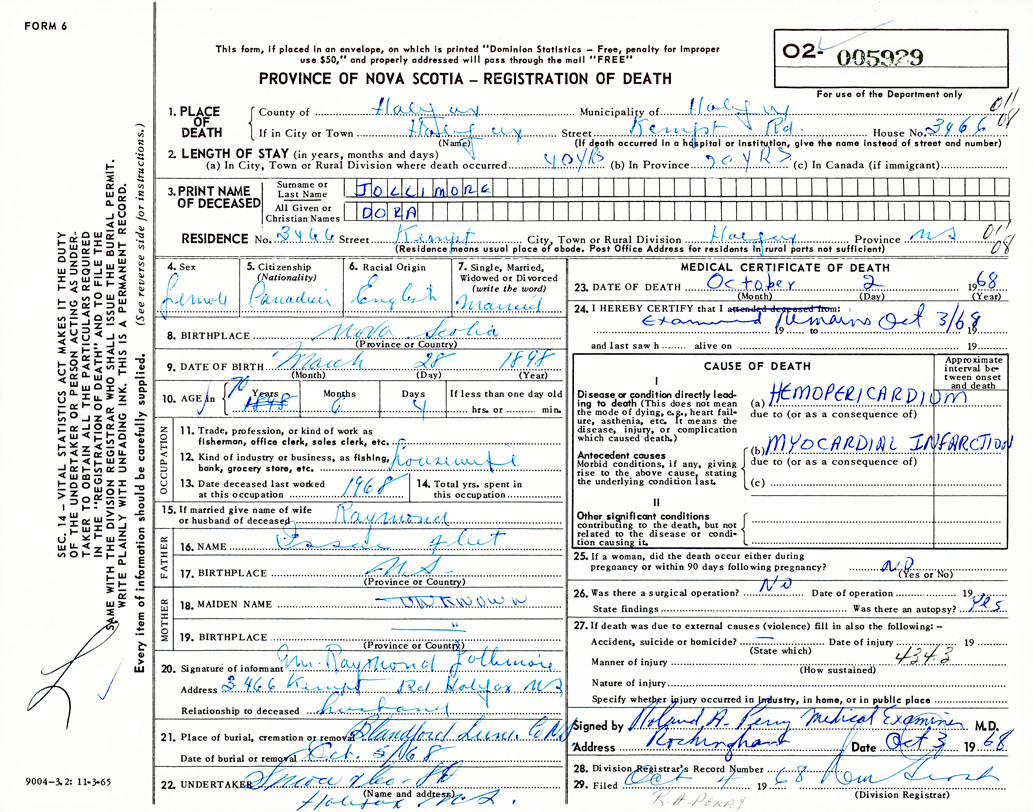 FORM 6
This form, if placed in an envelope, on which is printed "Dominion Statistics – Free, penalty for improper
use $50," and properly addressed will pass through the mail "FREE"
PROVINCE OF NOVA SCOTIA – REGISTRATION OF DEATH
02- 005929
For use of the Department only
1. PLACE OF DEATH
County of Halifax Municipality of Halifax 011
If in City or Town Halifax Street Kempt Rd. House No. 3466 08
(Name) (If death occurred in a hospital or institution, give the name instead of street and number)
2. LENGTH OF STAY (in years, months and days)
(a) In City, Town or Rural Division where death occurred 40 YRS (b) In Province 70 YRS (c) In Canada (if immigrant)
3. PRINT NAME OF DECEASED
Surname or Last Name JOLLIMORE
All Given or Christian Names DORA
RESIDENCE No. 3466 Street Kempt City, Town or Rural Division Halifax Province NS 011
(Residence means usual place of abode. Post Office Address for residents in rural parts not sufficient) 08
4. Sex
Female
5. Citizenship
(Nationality)
Canadian
6. Racial Origin
English
7. Single, Married,
Widowed or Divorced
(write the word)
Married
8. BIRTHPLACE Nova Scotia
(Province or Country)
9. DATE OF BIRTH March 28 1898
(Month) (Day) (Year)
10. AGE 70 Years 1898 Months 6 Days 4 If less than one day old
hrs. or min.
OCCUPATION
11. Trade, profession, or kind of work as
fisherman, office clerk, sales clerk, etc.
12. Kind of industry or business, as fishing,
bank, grocery store, etc. housewife
13. Date deceased last worked
at this occupation 1968
14. Total yrs. spent in
this occupation
15. If married give name of wife
or husband of deceased Raymond
FATHER
16. NAME
17. BIRTHPLACE N.S.
(Province or Country)
MOTHER
18. MAIDEN NAME UNKNOWN
19. BIRTHPLACE "
(Province or Country)
20. Signature of informant Raymond Jollimore
Address 3466 Kempt Rd Halifax NS
Relationship to deceased husband
21. Place of burial, cremation or removal Blandford Lun. Co NS
Date of burial or removal Oct. 5/68
22. UNDERTAKER
(Name and address)
Halifax N.S.
MEDICAL CERTIFICATE OF DEATH
23. DATE OF DEATH October 2 1968
(Month) (Day) (Year)
24. I HEREBY CERTIFY that I attended deceased from:
Examined Remains Oct 3/68
19 to 19
and last saw h alive on 19
CAUSE OF DEATH
Approximate
interval be-
tween onset
and death
I
Disease or condition directly lead-
ing to death (This does not mean
the mode of dying, e.g., heart fail-
ure, asthenia, etc. It means the
disease, injury, or complication
which caused death.)
(a) HEMOPERICARDIUM
due to (or as a consequence of)
Antecedent causes
Morbid conditions, if any, giving
rise to the above cause, stating
the underlying condition last.
(b) MYOCARDIAL INFARCTION
due to (or as a consequence of)
(c)
II
Other significant conditions
contributing to the death, but not
related to the disease or condi-
tion causing it.
25. If a woman, did the death occur either during
pregnancy or within 90 days following pregnancy? NO
(Yes or No)
26. Was there a surgical operation? NO Date of operation 19
State findings Was there an autopsy? Yes
27. If death was due to external causes (violence) fill in also the following: –
Accident, suicide or homicide? — Date of injury 19
(State which)
Manner of injury 434.3
(How sustained)
Nature of injury
Specify whether injury occurred in industry, in home, or in public place
Signed by Roland A. Perry Medical Examiner M.D.
Address Rockingham Date Oct 3 1968
28. Division Registrar's Record Number
29. Filed Oct 4 1968
(Division Registrar)
R.A. PERRY
SEC. 14 – VITAL STATISTICS ACT MAKES IT THE DUTY
OF THE UNDERTAKER OR PERSON ACTING AS UNDER-
TAKER TO OBTAIN ALL THE PARTICULARS REQUIRED
IN THE "REGISTRATION OF DEATH" AND FILE THE
SAME WITH THE DIVISION REGISTRAR WHO SHALL ISSUE THE BURIAL PERMIT.
WRITE PLAINLY WITH UNFADING INK. THIS IS A PERMANENT RECORD.
Every item of information should be carefully supplied. (See reverse side for instructions.)
9004-3.2: 11-3-65